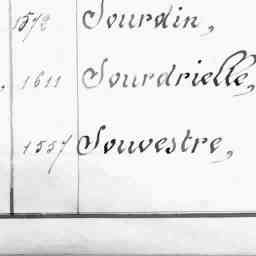 1572 Sourdin,
1611 Sourdrielle,
1557 Souvestre,